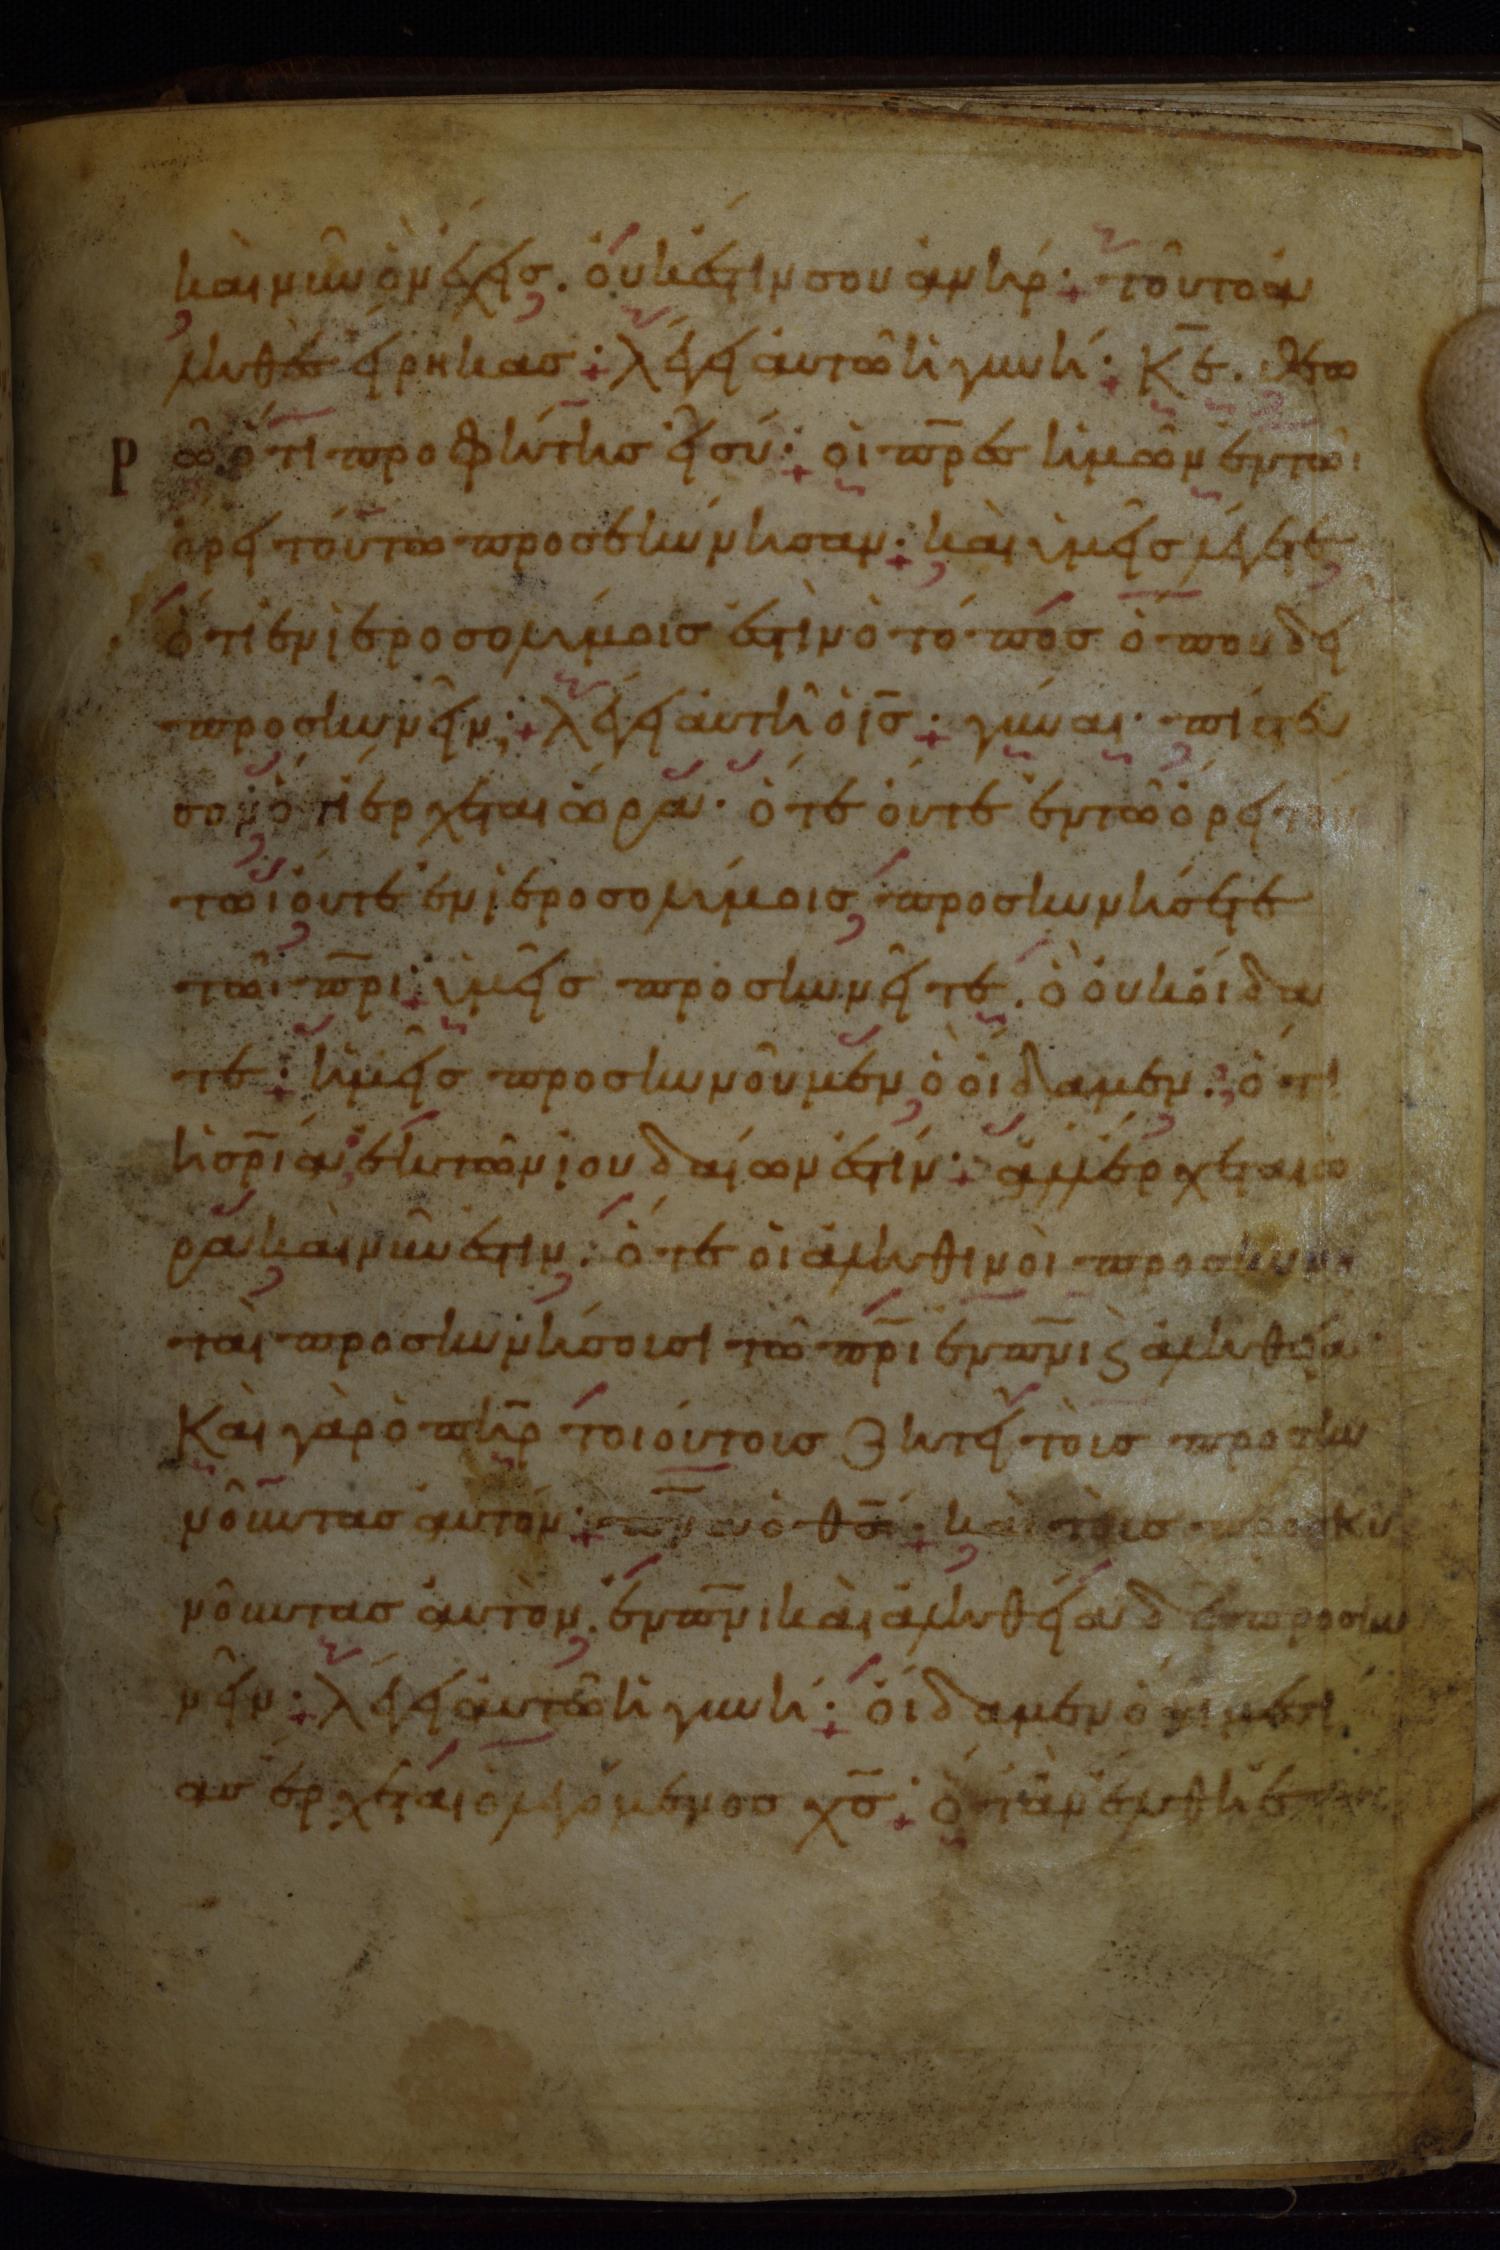 καὶ νῦν ὃν ἔχεις. οὐκ ἔστιν σου ἀνήρ· τοῦτο ἀ
ληθὲς ἔρηκας· λέγει αὐτῶ ἡ γυνή· Κ̅ε̅. θεω
ρῶ ὅτι προφήτης εἶ σύ· οἱ π̅ρ̅ες ἡμῶν ἐν τῶι
ὄρει τούτω προσεκύνησαν· καὶ ὑμεῖς λέγετε
ὅτι ἐν ἱεροσολύμοις ἐστὶν ὁ τόπος ὅπου δεῖ
προσκυνεῖν· λέγει αὐτῆ ὁ ι̅ς̅· γύναι· πίστευ
σον ὅτι ἔρχεται ὥρα· ὅτε οὔτε ἐν τῶ ὄρει τού
τωι οὔτε ἐν ἱεροσολύμοις προσκυνήσετε
τῶι π̅ρ̅ι· ὑμεῖς προσκυνεῖτε. ὃ οὐκ οἴδα
τε· ἡμεῖς προσκυνοῦμεν ὃ οἴδαμεν. ὅτι
ἡ σ̅ρ̅ία ἐκ τῶν ἰουδαίων ἐστίν· ἀλλ' ἔρχεται ὥ
ρα καὶ νῦν ἐστιν. ὅτε οἱ ἀληθινοὶ προσκυνη
ταὶ προσκυνήσοισι τῶ π̅ρ̅ι ἐν π̅ν̅ι ϛ ἀληθεία·
Καὶ γὰρ ὁ π̅η̅ρ τοιούτοις ζητεῖ τοῖς προσκυ
νοῦντας αὐτόν· π̅ν̅α ὁ θ̅ς̅· καὶ τοῖς προσκυ
νοῦντας αὐτὸν. ἐν π̅ν̅ι καὶ ἀληθεία δεῖ προσκυ
νεῖν· λέγει αὐτῶ ἡ γυνή· οἴδαμεν ὅτι μεσί
ας ἔρχεται ὁ λεγόμενος χ̅ς̅· ὅταν ἔλθη ἐ